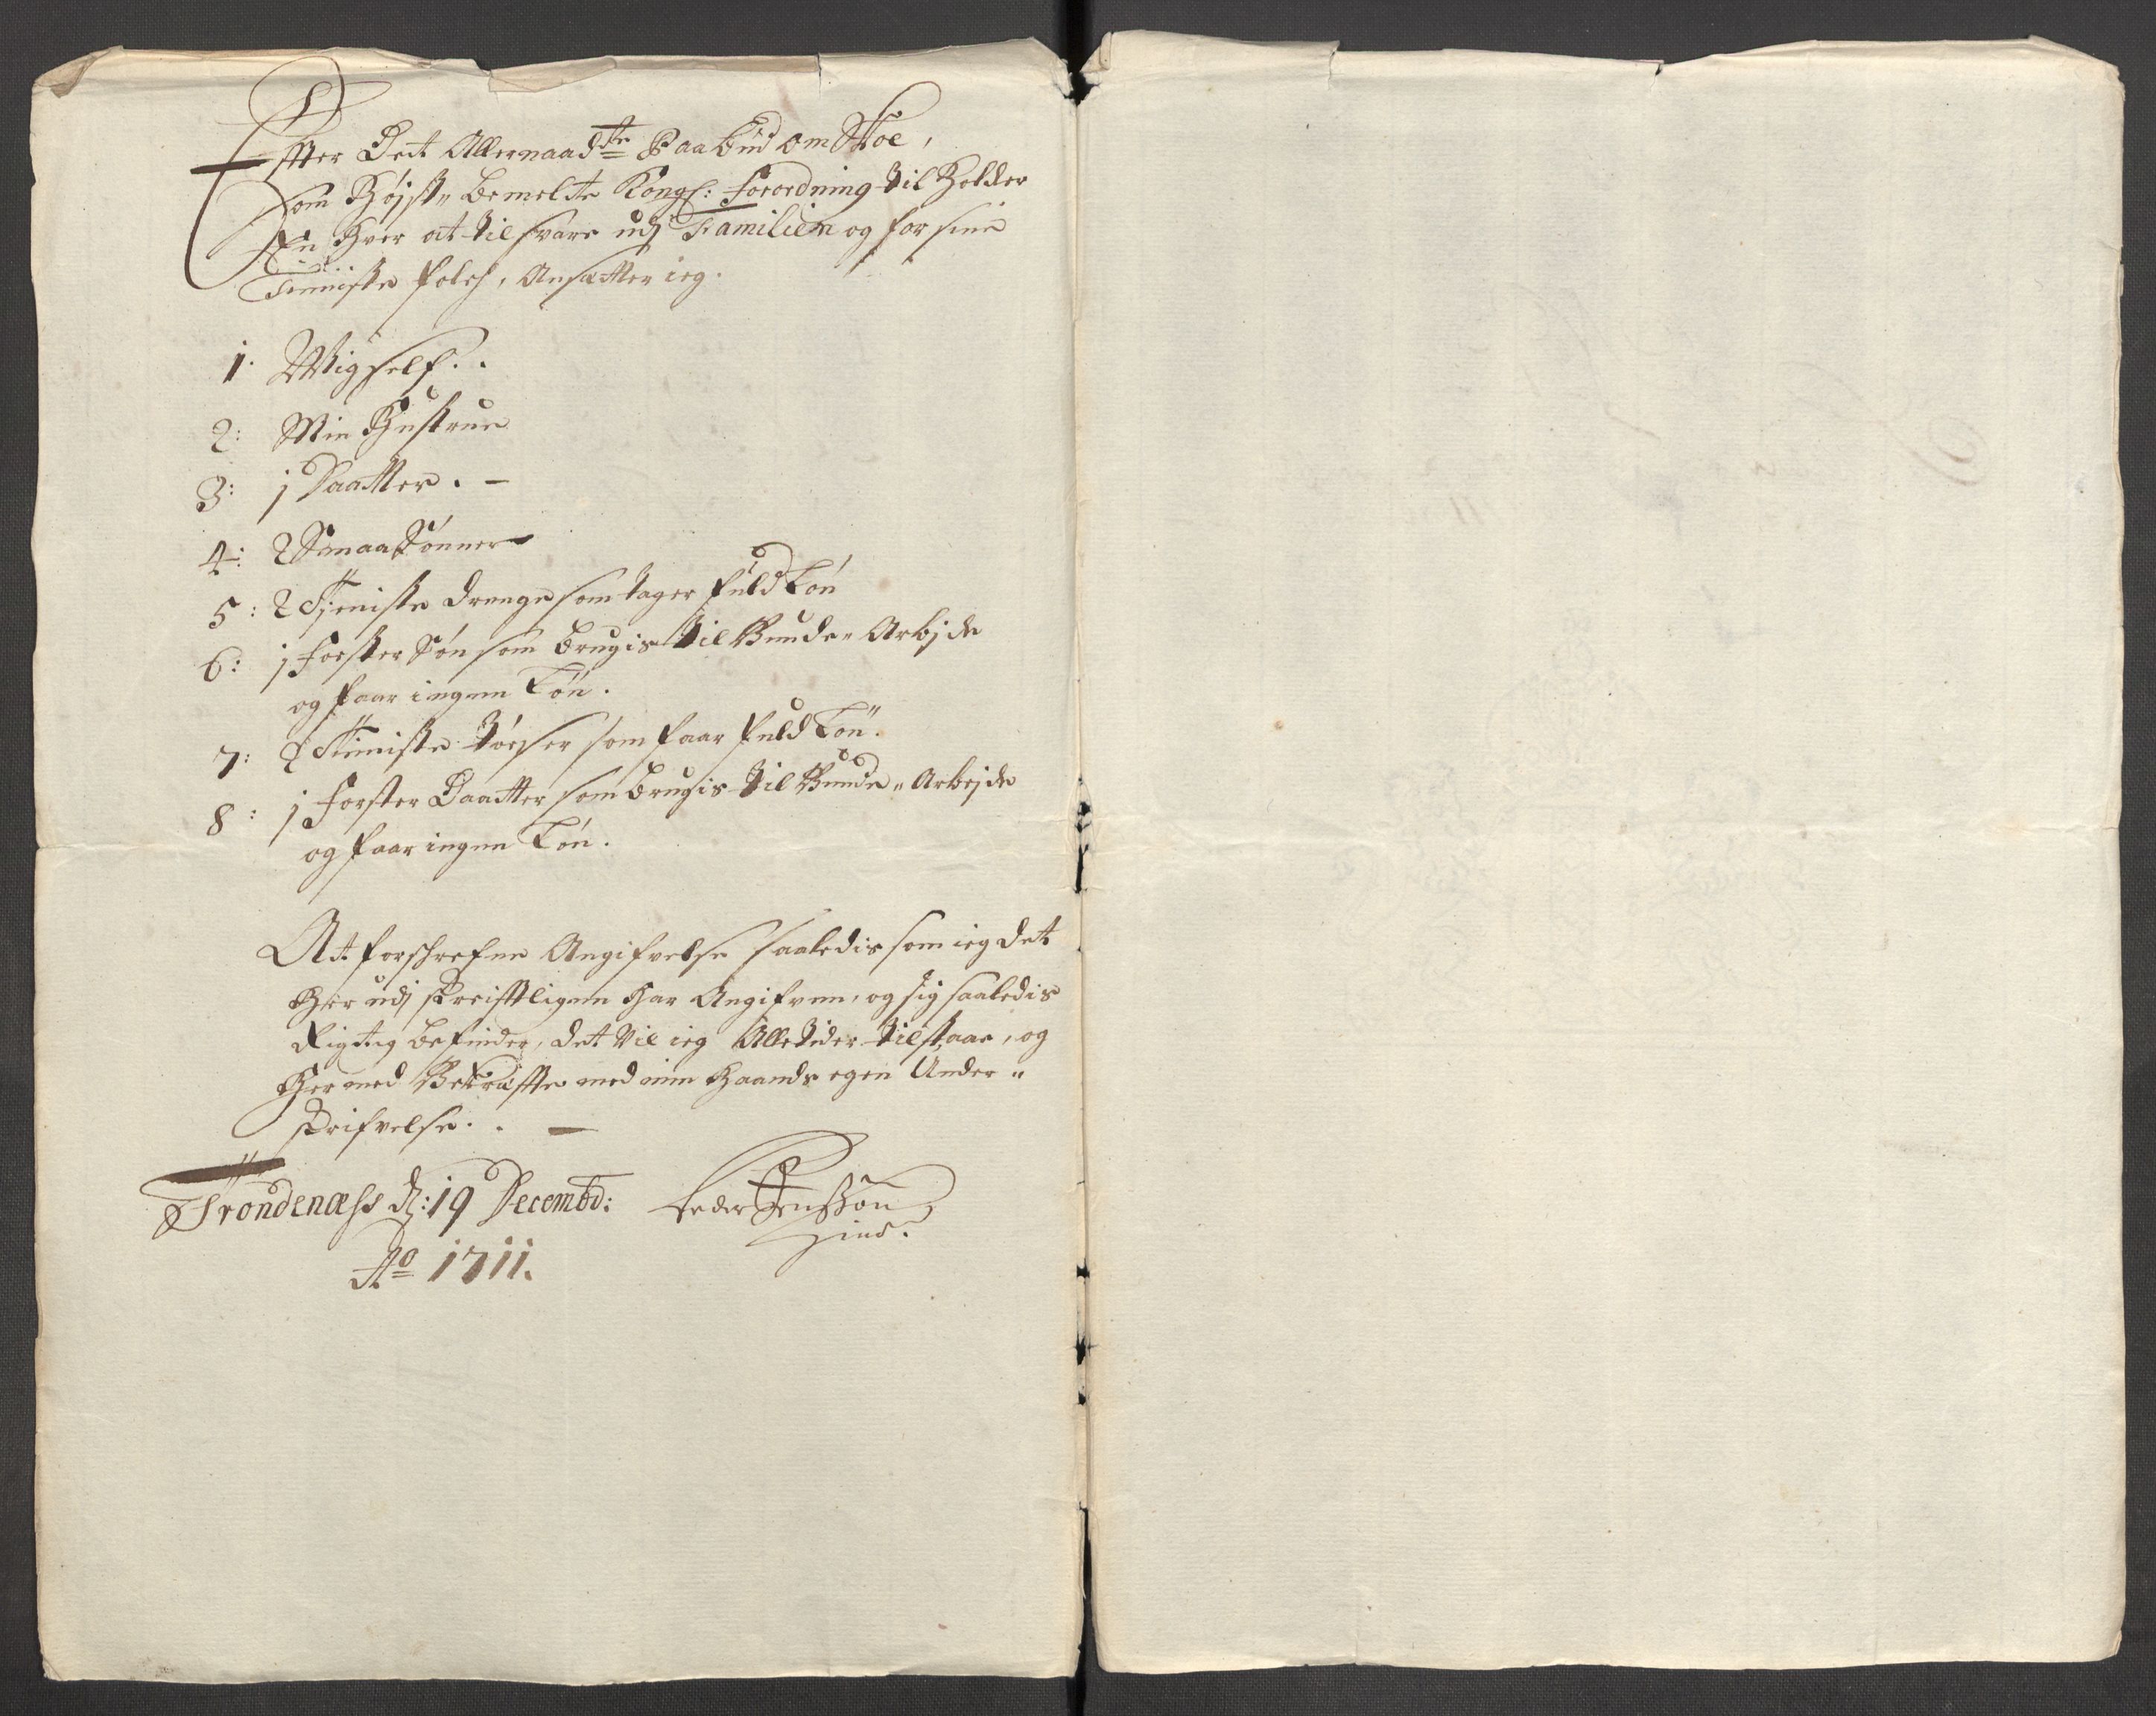 Effter Det Allernaadste Paabud om Skoe,
som Højst- bemelte Kongl: Forordning tilholder
En hver at tilsvare udj Familien og for sine
Tienniste folch, Ansætter ieg.
1. Mig self. .
2: Min Hustrue
3: j Daatter. -
4: 2 Smaa Sønner
5: 2 Tjeniste drenge som tager fuld Løn
6: j Foster Søn som brugis til Bunde- Arbjde
og faar ingen Løn.
7: 2 Tieniste tøeser som faar fuld Løn.
8: j Foster Daatter som brugis til Bunde- Arbejde
og faar ingen Løn.
At forschrefne Angifvelse saaledis som ieg det
Her udj skrifftligen har Angifven, og sig saaledis
Rigtig befinder, det Vil ieg Alletider tilstaae, og
Hermed Bekræffte med min haands egen Under-
skrifvelse. . -
Trondenæss d: 19 Decembr:
Peder Jenssøn
Hind.
Ao 1711.